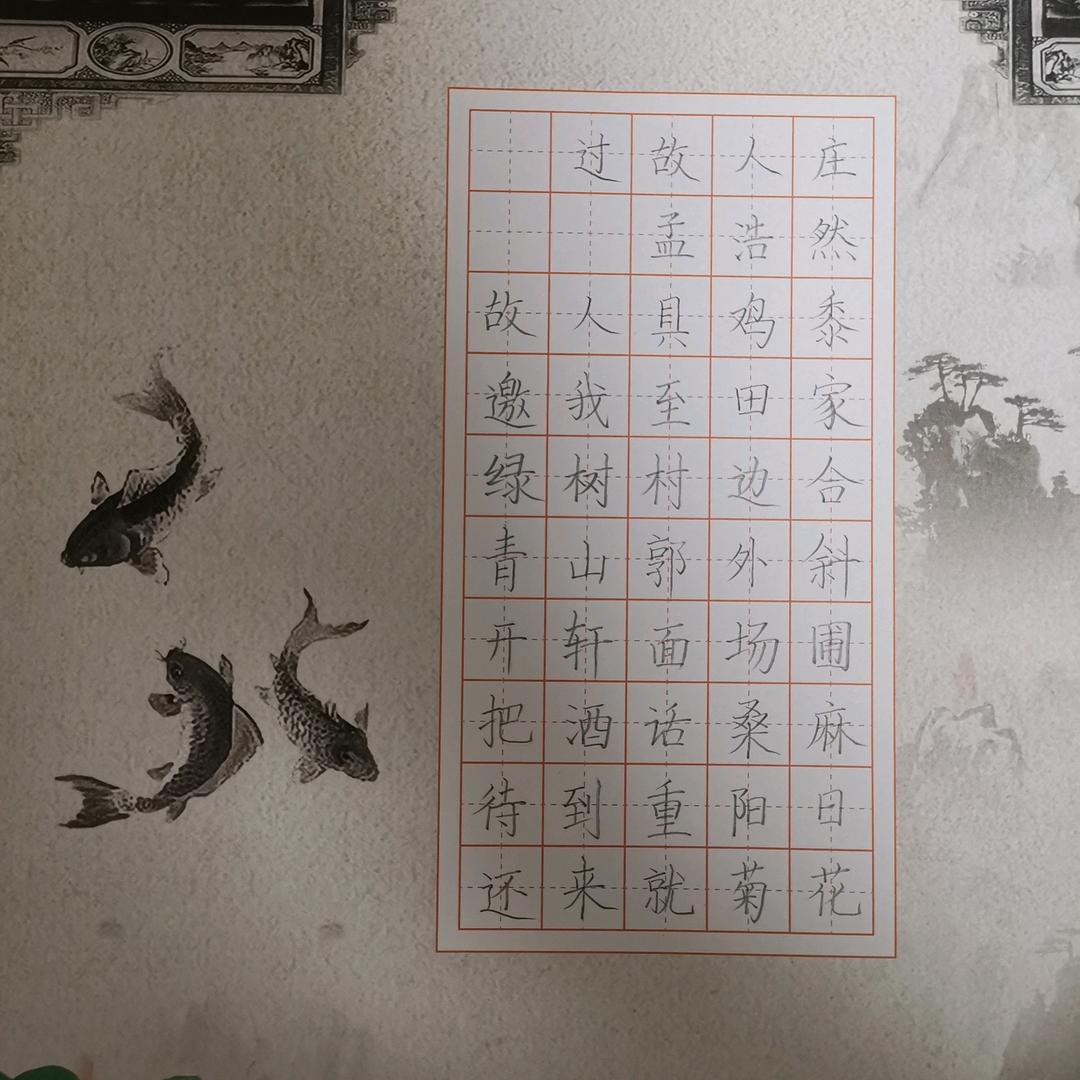 过故人庄
孟浩然
故人具鸡黍
邀我至田家
绿树村边合
青山郭外斜
开轩面场圃
把酒话桑麻
待到重阳日
还来就菊花